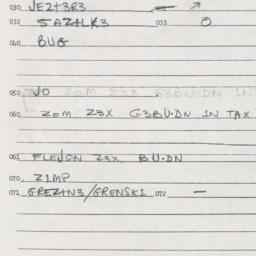 030 JEZ+3R3
032 SAZ+LK3 033 O
040 BUG
050 JO
060 ZOM Z3X G3BU·DN IN TAX
061 FLEJON Z3X BU·DN
070 Z1MP
071 GREZ+N3/GRENSK1 072 —